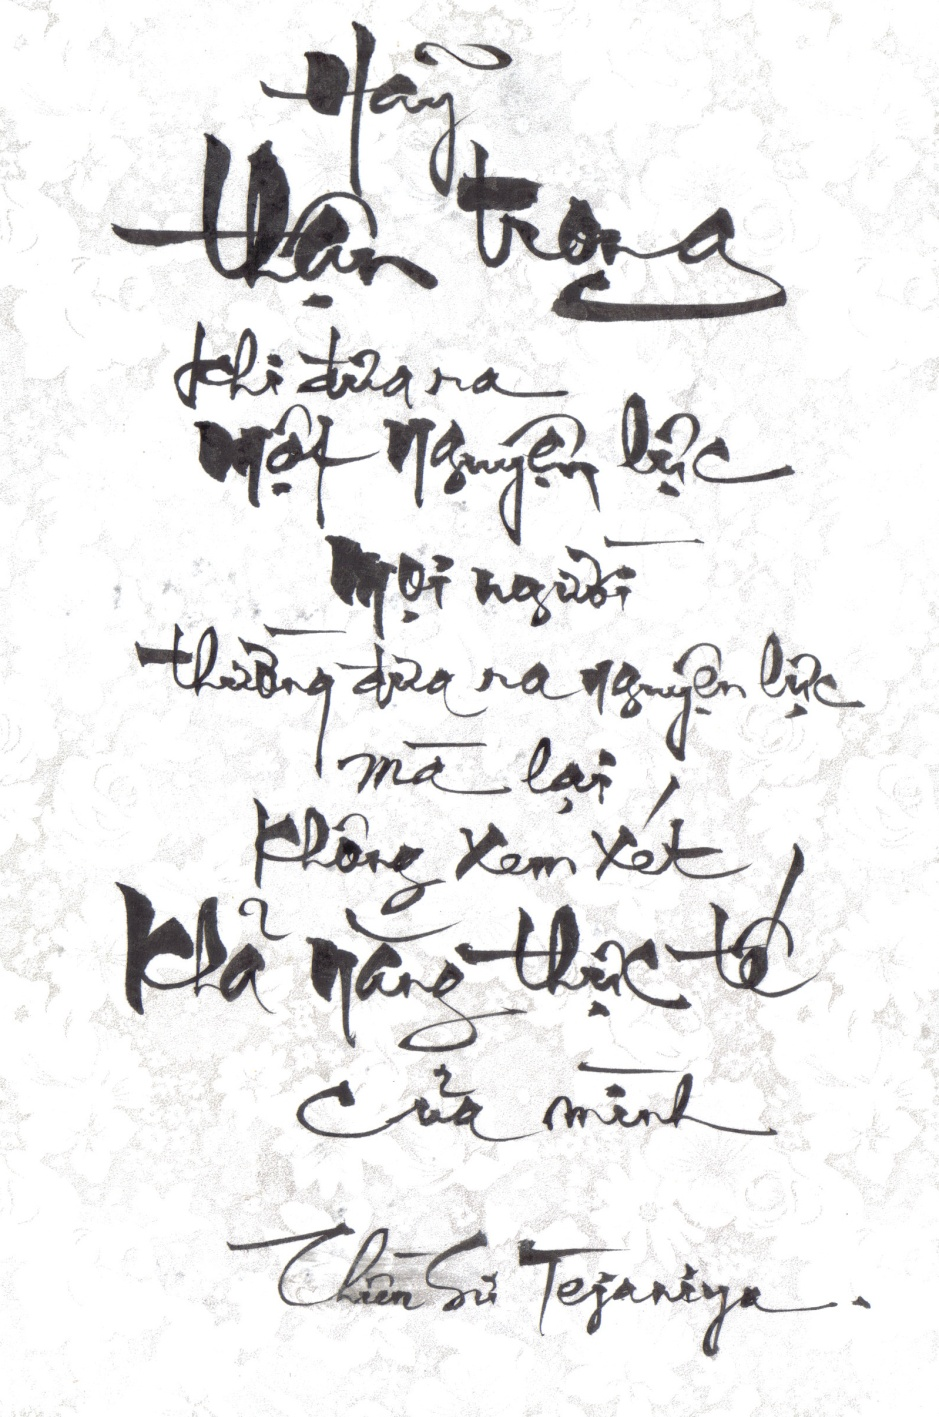 Hãy
thận trọng
khi đưa ra
một nguyện lực
Mọi người
thường đưa ra nguyện lực
mà lại
không xem xét
Khả năng thực tế
của mình
Thiền Sư Tejaniya.